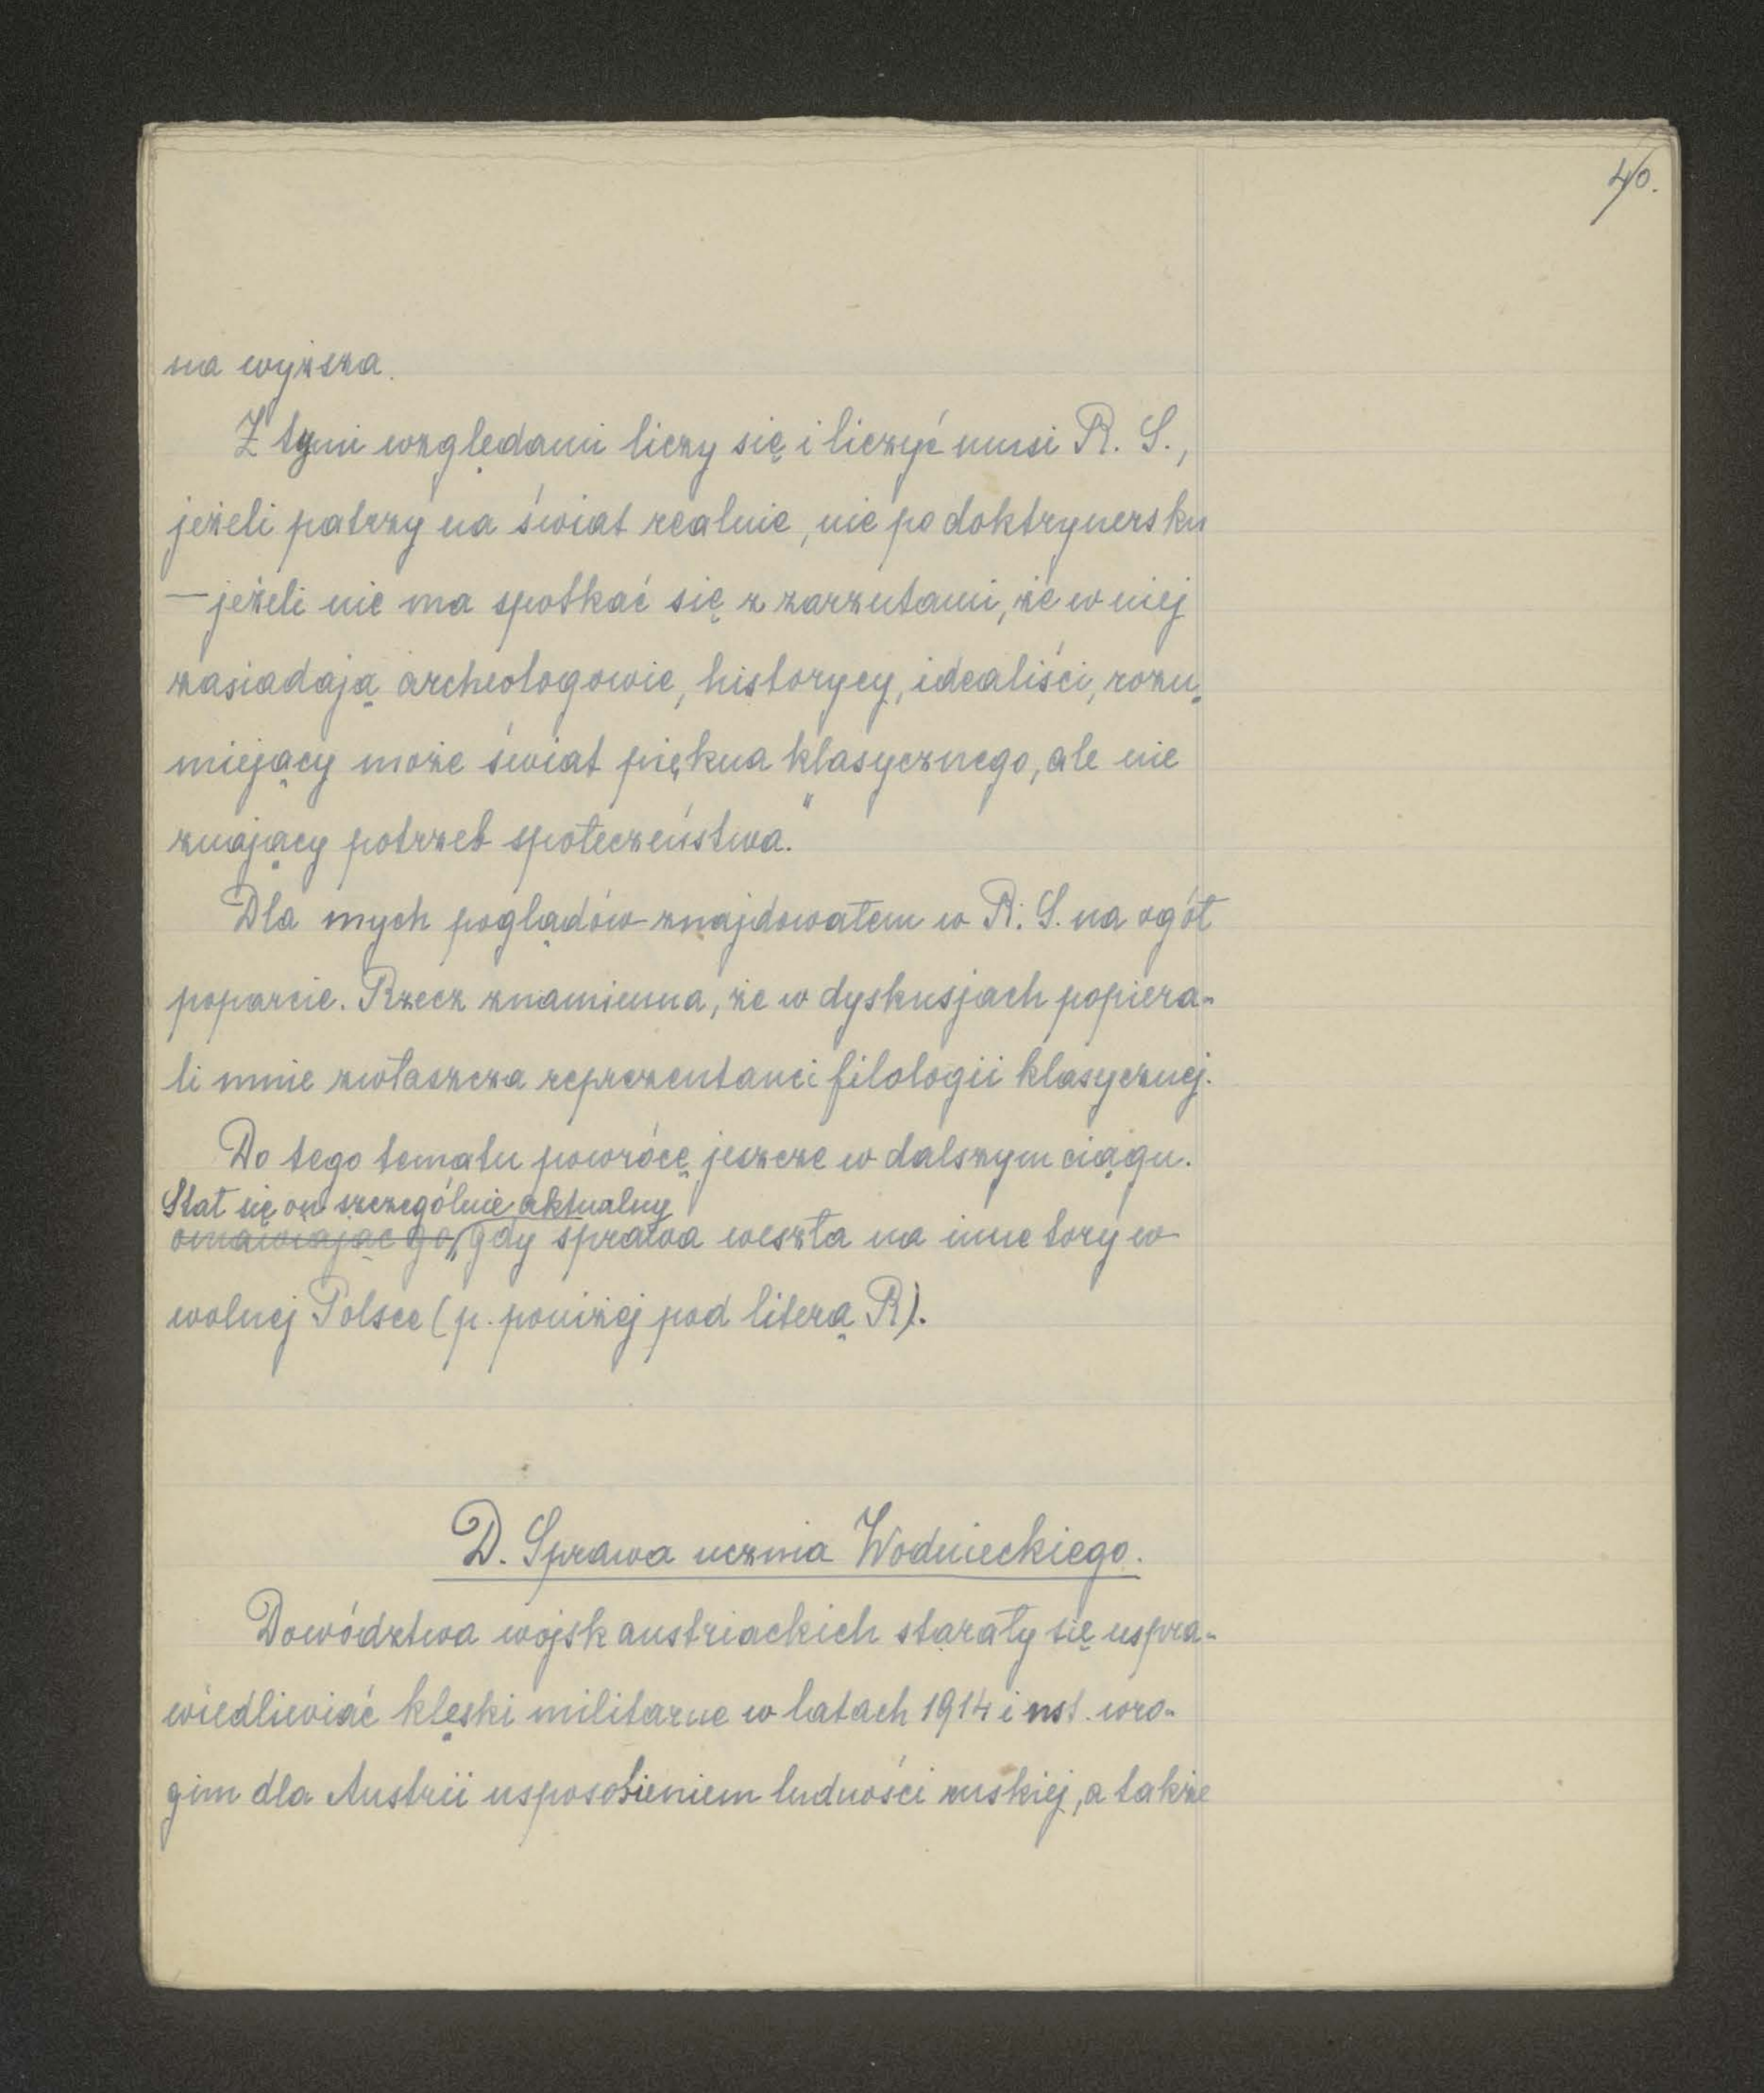 40.
na wyższa.
Z tymi względami liczy się i liczyć musi R. S.,
jeżeli patrzy na świat realnie, nie po doktrynersku
— jeżeli nie ma spotkać się z zarzutami, że w niej
zasiadają archeologowie, historycy, idealiści, rozu-
miejący może świat piękna klasycznego, ale nie
znający potrzeb społeczeństwa."
Dla mych poglądów znajdowałem w R. S. na ogół
poparcie. Rzecz znamienna, że w dyskusjach popiera-
li mnie zwłaszcza reprezentanci filologii klasycznej.
Do tego tematu powrócę jeszcze w dalszym ciągu.
Stał się on szczególnie aktualny
omawiając go, gdy sprawa weszła na inne tory w
wolnej Polsce (p. poniżej pod literą R).
D. Sprawa ucznia Wodnieckiego.
Dowództwa wojsk austriackich starały się uspra-
wiedliwiać klęski militarne w latach 1914 i nst. wro-
gim dla Austrii usposobieniem ludności ruskiej, a także